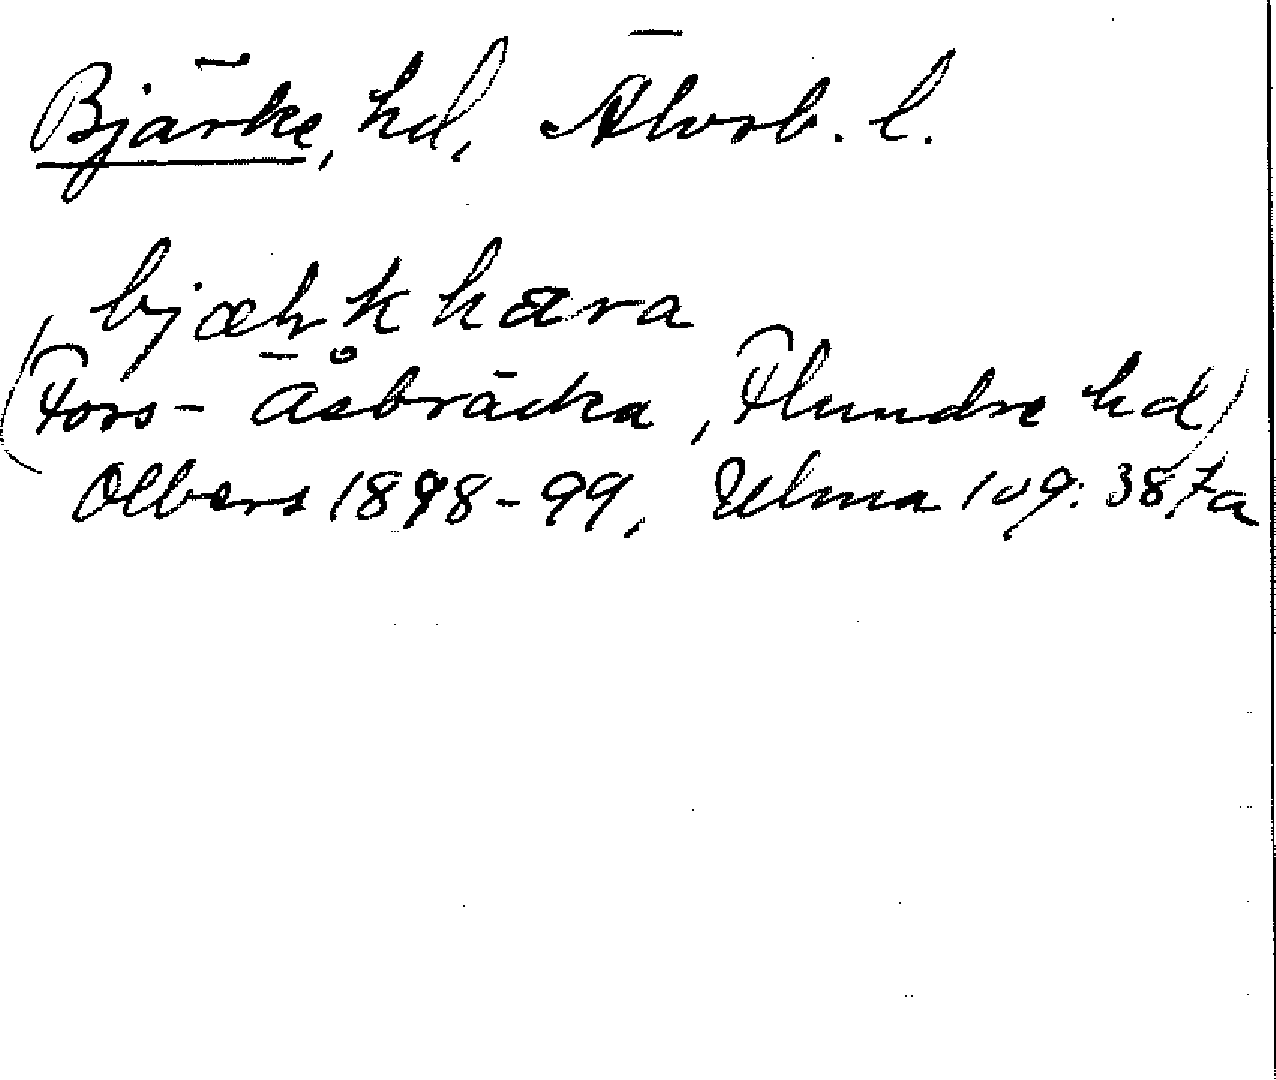 Bjärke, hd, Älvsb. l.
bjæhk hæra
(Fors - Åsbräcka, Flundre hd)
Olbers 1898-99, Ulma 109:387a